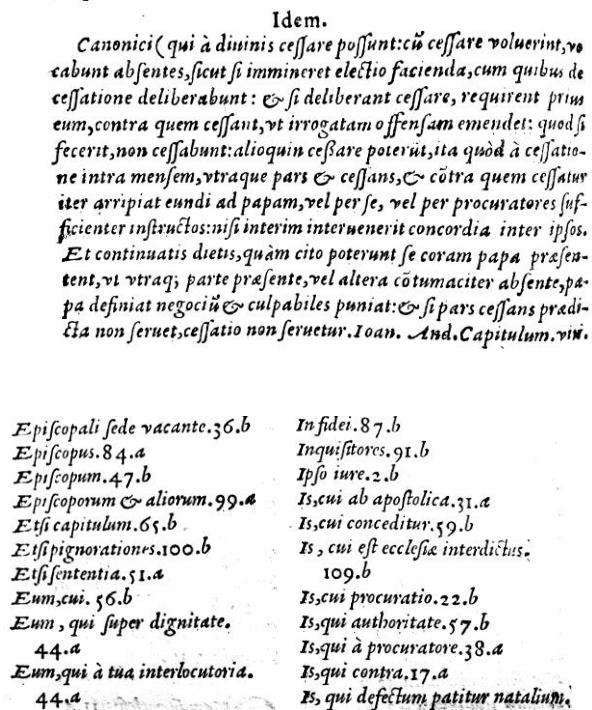 Idem.
Canonici ( qui à diuinis ceſſare poſſunt:cũ ceſſare voluerint,vo
cabunt abſentes,ſicut ſi immineret electio facienda,cum quibus de
ceſſatione deliberabunt: & ſi deliberant ceſſare, requirent prius
eum,contra quem ceſſant,vt irrogatam offenſam emendet: quod ſi
fecerit,non ceſſabunt:alioquin ceßare poterũt,ita quòd à ceſſatio-
ne intra menſem,vtraque pars & ceſſans,& cõtra quem ceſſatur
iter arripiat eundi ad papam,vel per ſe, vel per procuratores ſuf-
ficienter inſtructos:niſi interim interuenerit concordia inter ipſos.
Et continuatis dietis,quàm cito poterunt ſe coram papa præſen-
tent,vt vtraq; parte præſente,vel altera cõtumaciter abſente,pa-
pa definiat negociũ & culpabiles puniat:& ſi pars ceſſans prædi-
cta non ſeruet,ceſſatio non ſeruetur.Ioan. And.Capitulum.viii.
Epiſcopali ſede vacante.36.b
Epiſcopus.84.a
Epiſcopum.47.b
Epiſcoporum & aliorum.99.a
Etſi capitulum.65.b
Etſi pignorationes.100.b
Etſi ſententia.51.a
Eum,cui. 56.b
Eum , qui ſuper dignitate.
44.a
Eum,qui à tua interlocutoria.
44.a
In fidei.87.b
Inquiſitores.91.b
Ipſo iure.2.b
Is,cui ab apoſtolica.31.a
Is,cui conceditur.59.b
Is , cui eſt eccleſiæ interdictus.
109.b
Is,cui procuratio.22.b
Is,qui authoritate.57.b
Is,qui à procuratore.38.a
Is,qui contra.17.a
Is, qui defectum patitur natalium.